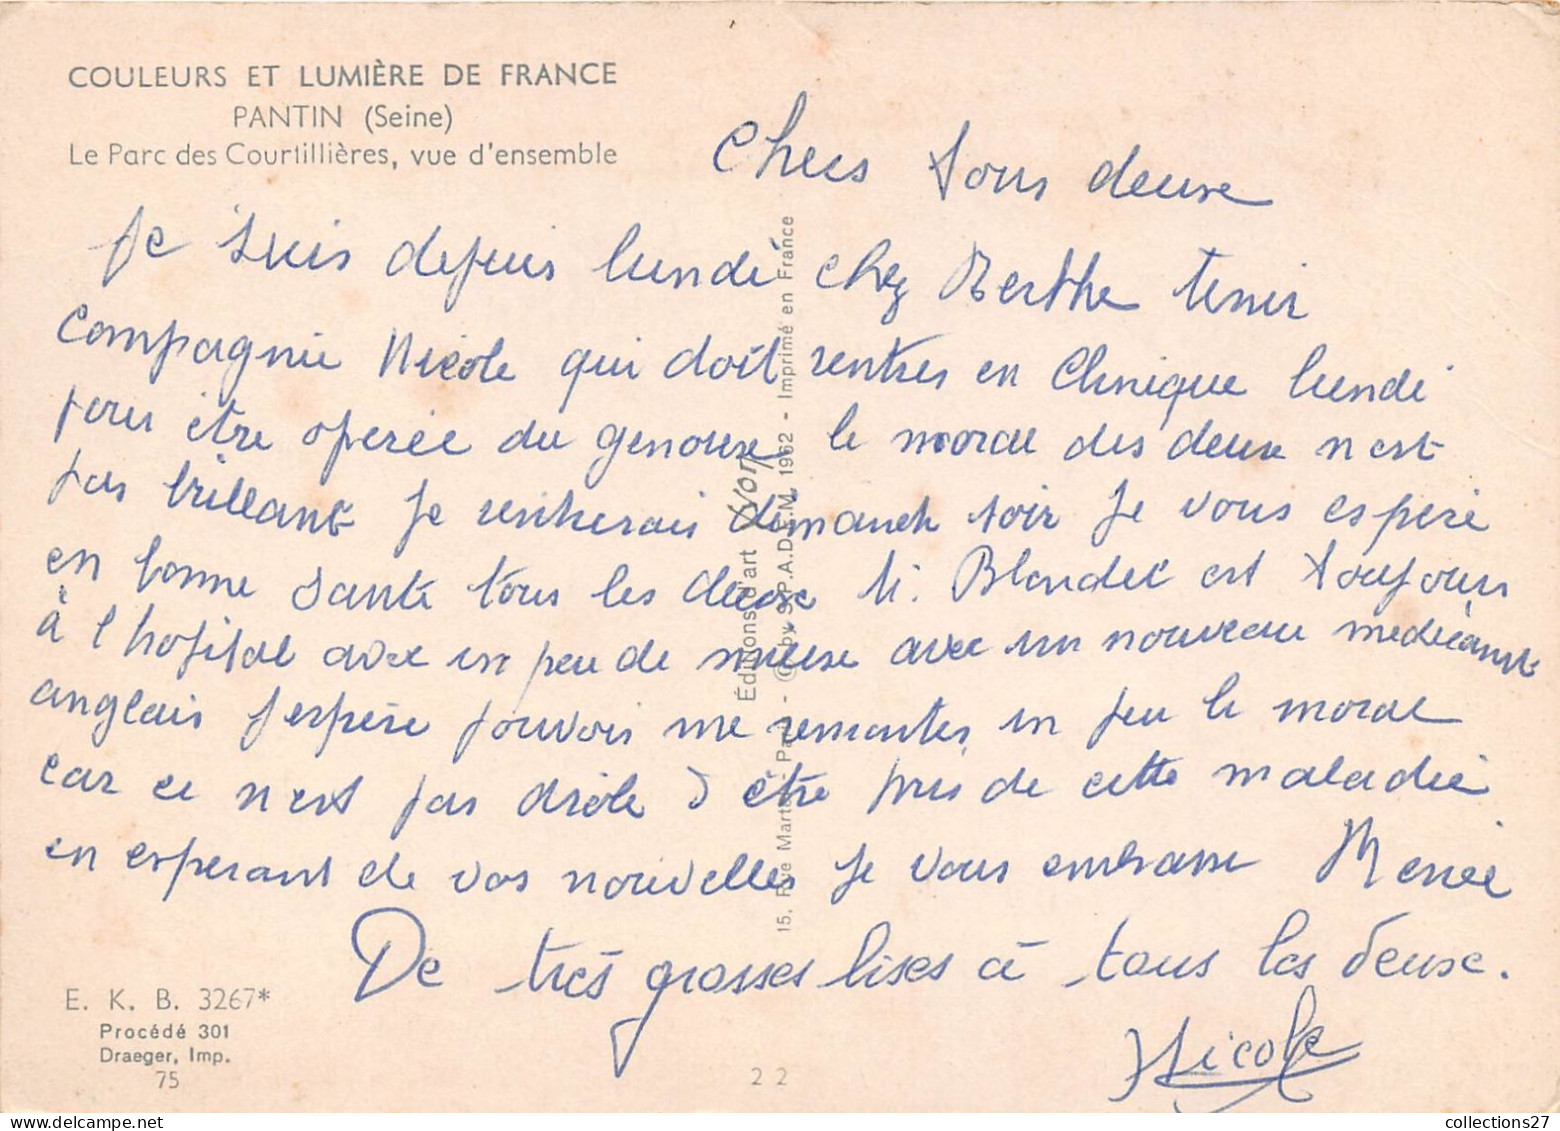 COULEURS ET LUMIÈRE DE FRANCE
PANTIN (Seine)
Le Parc des Courtillières, vue d'ensemble
Chers tous deux
Je suis depuis lundi chez Berthe tenir
compagnie Nicole qui doit rentrer en Clinique lundi
pour être operée du genoux le moral des deux n est
pas brillant Je rentrerais dimanch soir Je vous espere
en bonne santé tous les deux M. Blondel est toujours
à l hopital avec un peu de mieux avec un nouveau medicament
anglais J espère pouvoir me remonter un peu le moral
car ce n est pas drôle d être pris de cette maladie
en esperant de vos nouvelles Je vous embrasse Renée
De très grosses bises à tous les deux.
Nicole
Éditions d'art Yvon
15, Rue Martel, Paris - © by S.P.A.D.E.M. 1962 - Imprimé en France
E. K. B. 3267*
Procédé 301
Draeger, Imp.
75
22
collections27